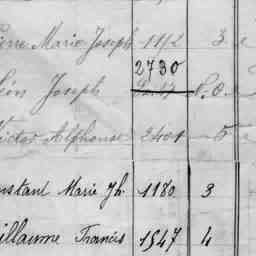 Pierre Marie Joseph 1192 3 e
2730
Léon Joseph N.o. e
Victor Alphonse 2401 5
Constant Marie Jh 1180 3
Guillaume Francis 1547 4